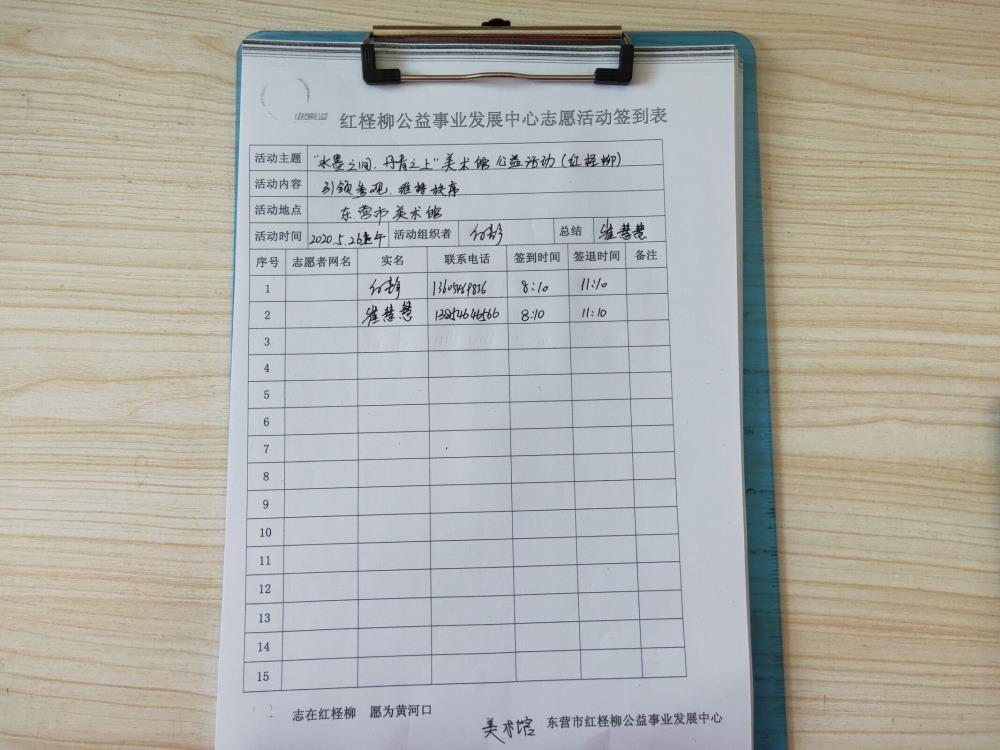 红柽柳公益事业发展中心志愿活动签到表
活动主题 "水墨之间,丹青之上"美术馆公益活动(红柽柳)
活动内容 引领参观,维持秩序
活动地点 东营市美术馆
活动时间 2020.5.26 活动组织者 总结 崔慧慧
序号 志愿者网名 实名 联系电话 签到时间 签退时间 备注
1 8:10 11:10
2 崔慧慧 13854646566 8:10 11:10
3
4
5
6
7
8
9
10
11
12
13
14
15
志在红柽柳 愿为黄河口
美术馆 东营市红柽柳公益事业发展中心